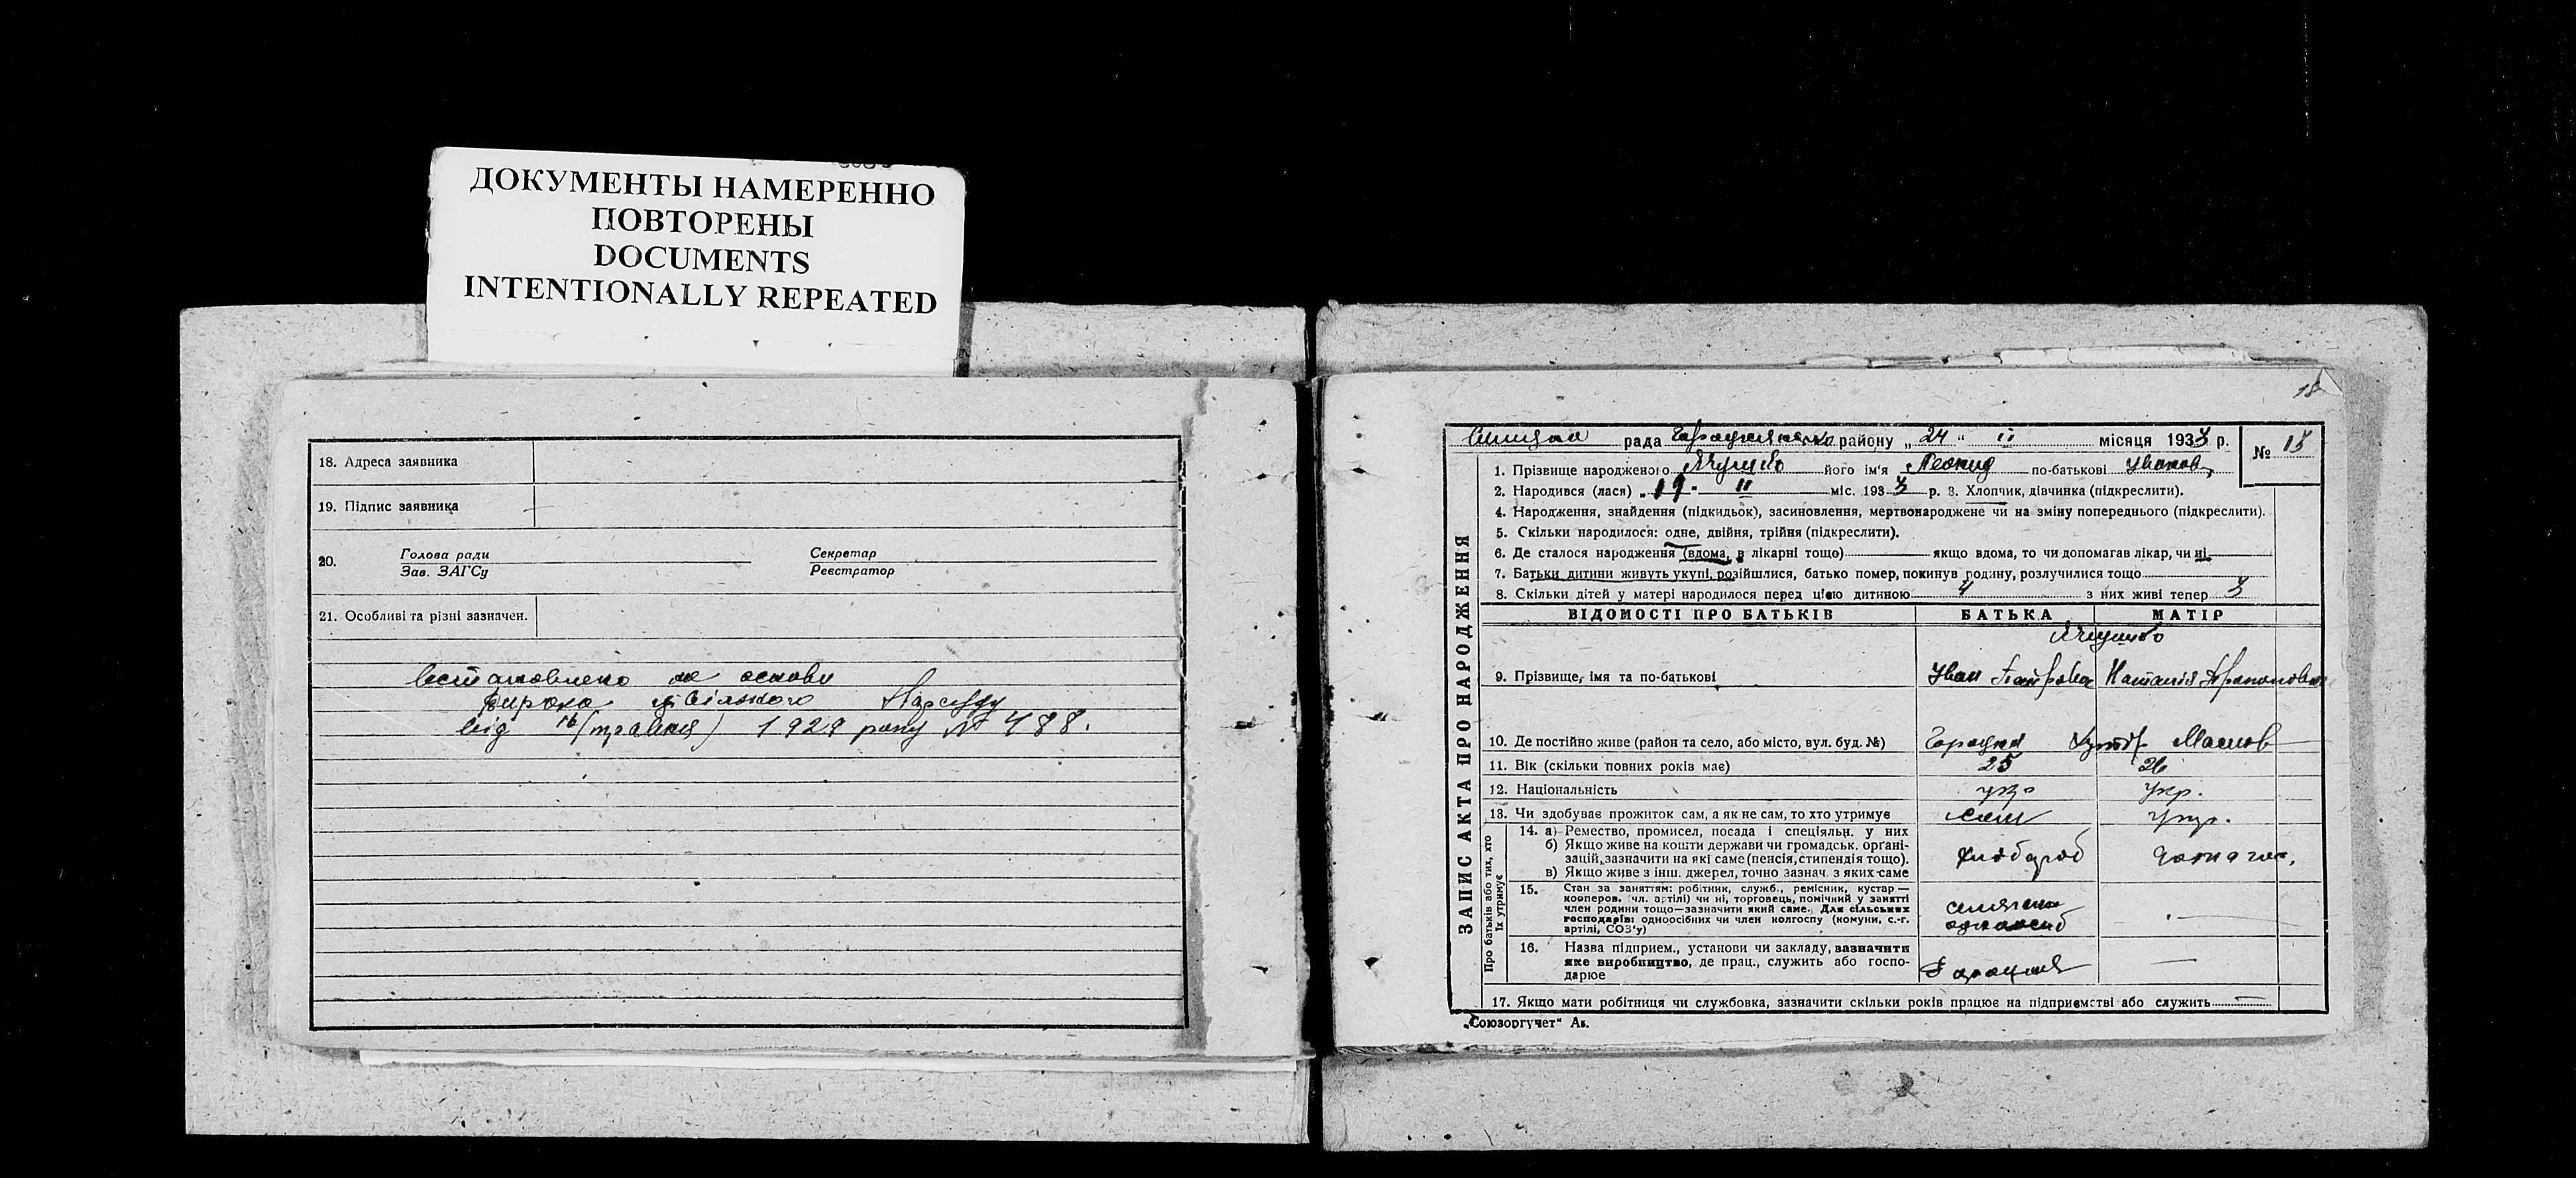 ДОКУМЕНТЫ НАМЕРЕННО
ПОВТОРЕНЫ
DOCUMENTS
INTENTIONALLY REPEATED
18. Адреса заявника
19. Підпис заявника
20. Голова ради Секретар
Зав. ЗАГСу Реєстратор
21. Особливі та різні зазначен.
на основи
Нарсуду
від 16 (травня) 1929 року № 488.
18
рада району „24“ II місяця 1933 р.
№ 15
1. Прізвище народженого його ім'я Леонид по-батькові Иванов
2. Народився (лася) „19“ II міс. 1933 р. 3. Хлопчик, дівчинка (підкреслити).
4. Народження, знайдення (підкидьок), засиновлення, мертвонароджене чи на зміну попереднього (підкреслити).
5. Скільки народилося: одне, двійня, трійня (підкреслити).
6. Де сталося народження (вдома, в лікарні тощо) якщо вдома, то чи допомагав лікар, чи ні
7. Батьки дитини живуть укупі, розійшлися, батько помер, покинув родину, розлучилися тощо
8. Скільки дітей у матері народилося перед цією дитиною 4 з них живі тепер 3
ЗАПИС АКТА ПРО НАРОДЖЕННЯ
ВІДОМОСТІ ПРО БАТЬКІВ БАТЬКА МАТІР
9. Прізвище, імя та по-батькові Иван Наталія
10. Де постійно живе (район та село, або місто, вул. буд. №) Хутор
11. Вік (скільки повних років має) 25 26
12. Національність укр. Укр.
13. Чи здобуває прожиток сам, а як не сам, то хто утримує сам
Про батьків або тих, хто їх утримує
14. а) Ремество, промисел, посада і спеціяльн. у них
б) Якщо живе на кошти держави чи громадськ. органі-
зацій, зазначити на які саме (пенсія, стипендія тощо).
в) Якщо живе з інш. джерел, точно зазнач. з яких саме
хлібороб
15. Стан за заняттям: робітник, служб., ремісник, кустар —
кооперов. (чл. артілі) чи ні, торговець, помічний у занятті
член родини тощо—зазначити який саме. Для сільських
господарів: одноосібних чи член колгоспу (комуни, с.-г.
артілі, СОЗ'у)
16. Назва підприєм., установи чи закладу, зазначити
яке виробництво, де прац., служить або госпо-
дарює
17. Якщо мати робітниця чи службовка, зазначити скільки років працює на підприємстві або служить —
„Союзоргучет“